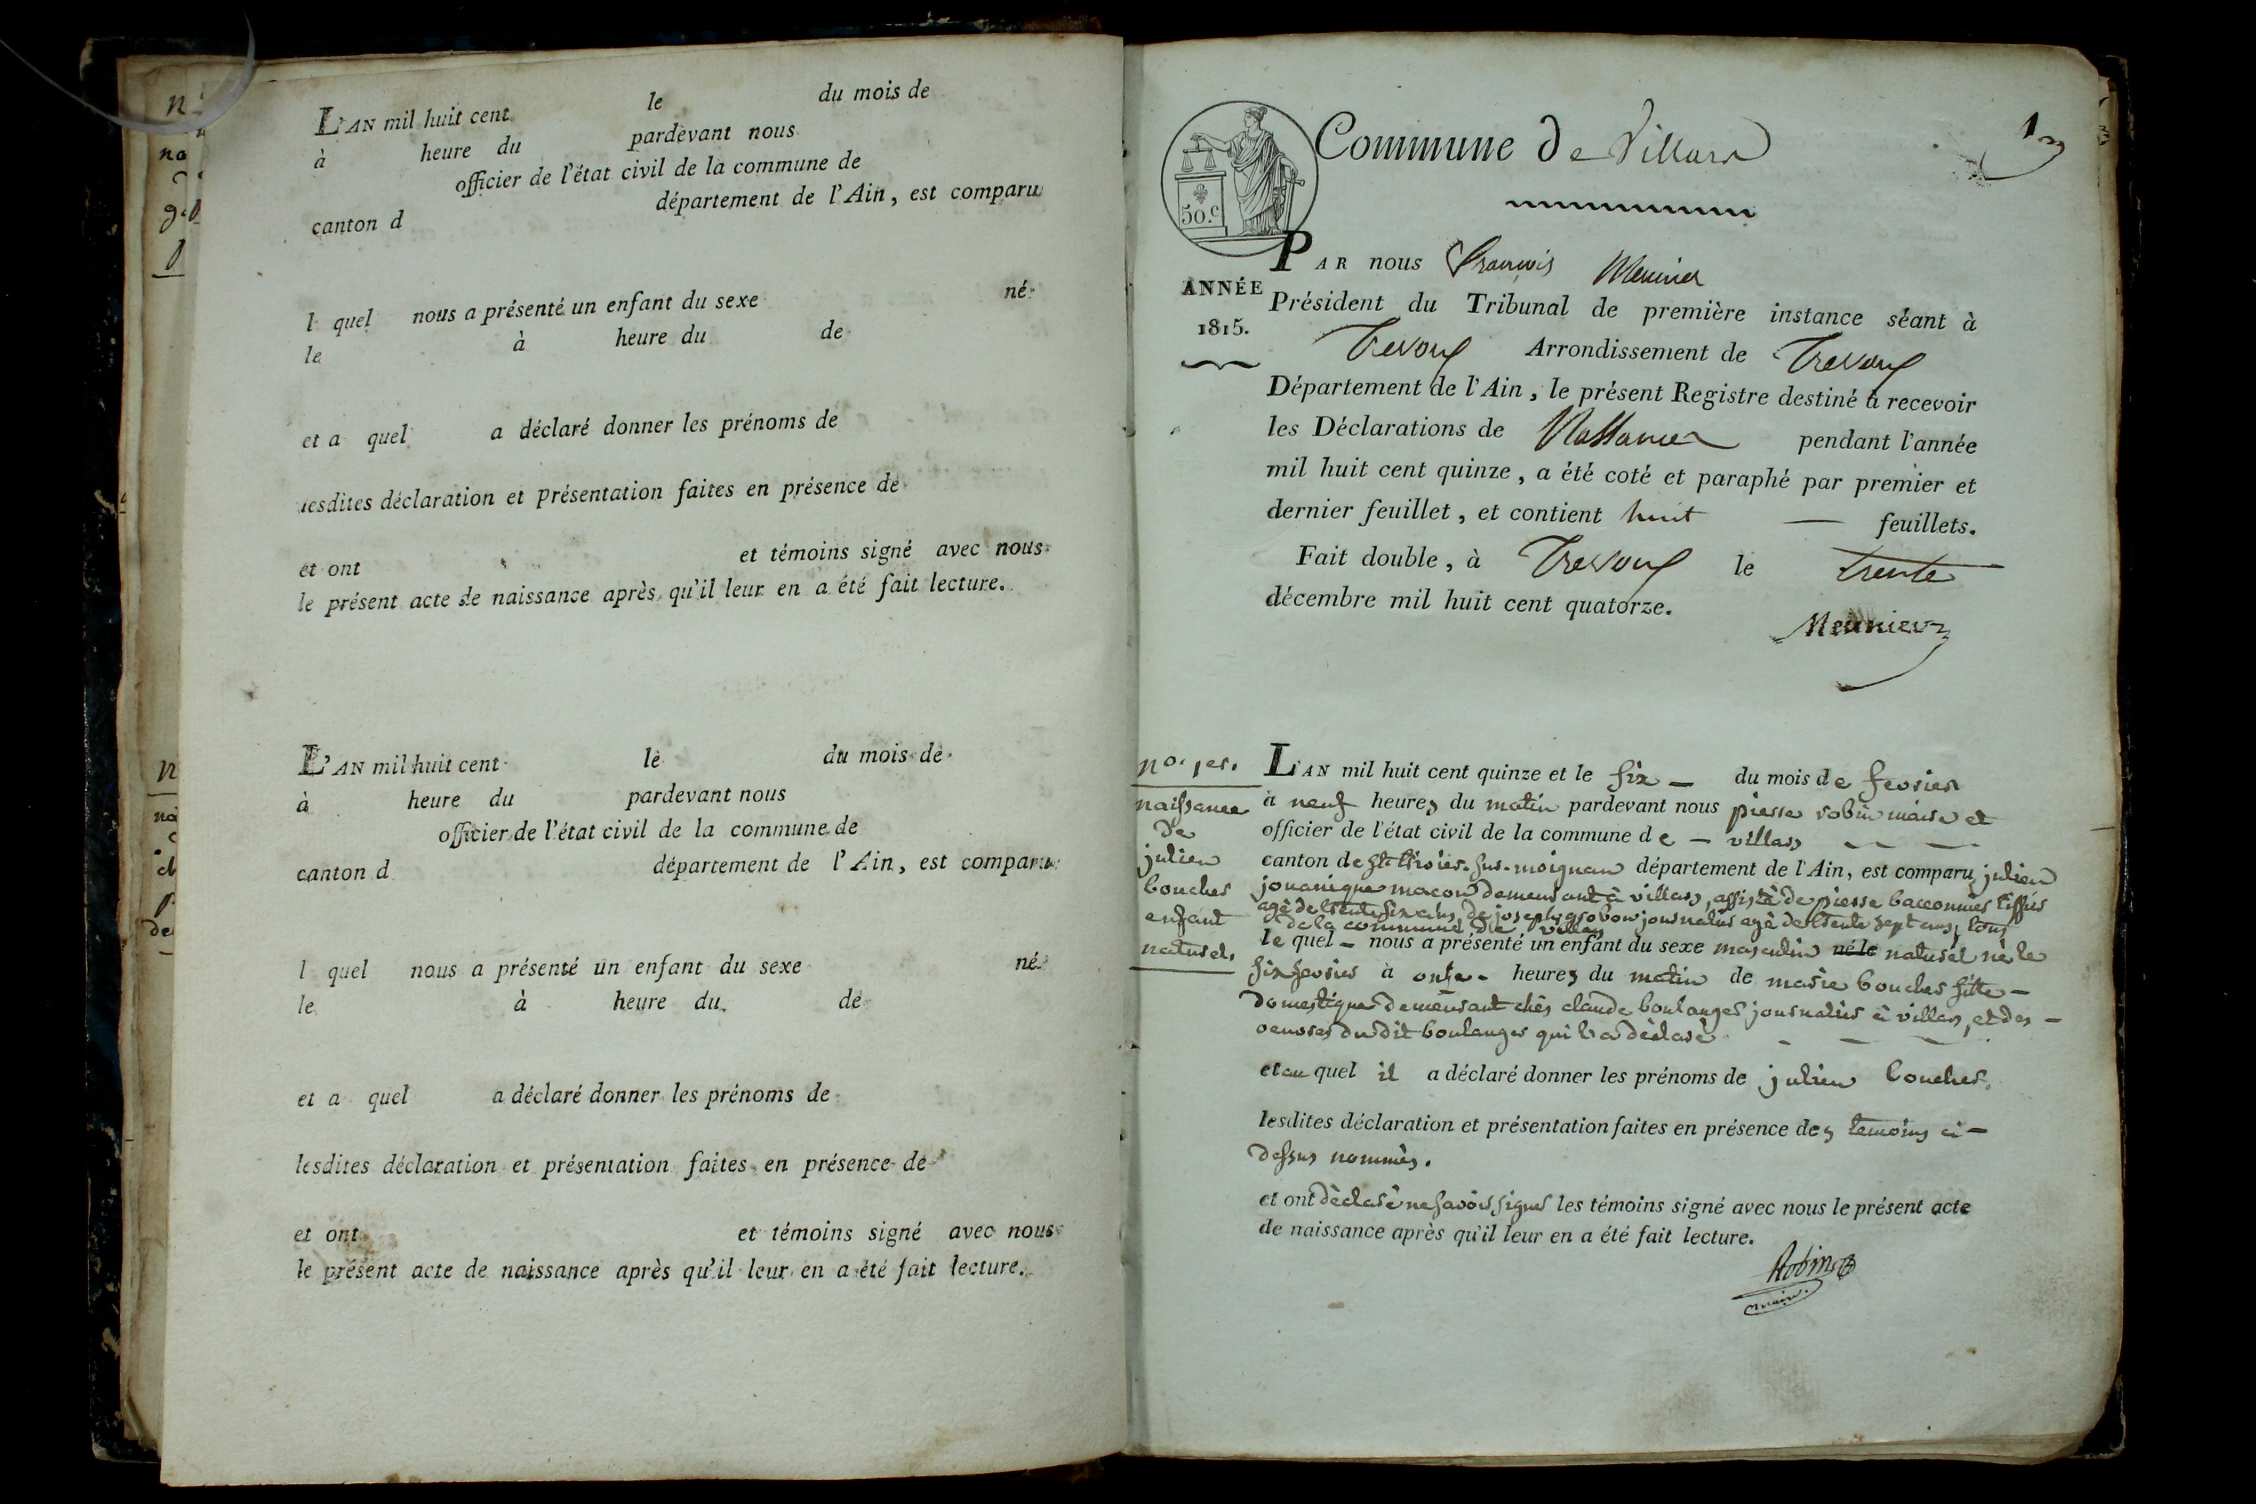 L'AN mil huit cent le du mois de
à heure du pardevant nous
officier de l'état civil de la commune de
canton d département de l'Ain, est comparu
l quel nous a présenté un enfant du sexe né
le à heure du de
et a quel a déclaré donner les prénoms de
lesdites déclaration et présentation faites en présence de
et ont et témoins signé avec nous
le présent acte de naissance après qu'il leur en a été fait lecture.
L'AN mil huit cent le du mois de
à heure du pardevant nous
officier de l'état civil de la commune de
canton d département de l'Ain, est comparu
l quel nous a présenté un enfant du sexe né
le à heure du de
et a quel a déclaré donner les prénoms de
lesdites déclaration et présentation faites en présence de
et ont et témoins signé avec nous
le présent acte de naissance après qu'il leur en a été fait lecture.
1er
Commune de Villars
50.c
PAR nous François Meunier
ANNÉE
1815.
Président du Tribunal de première instance séant à
Trevoux Arrondissement de Trevoux
Département de l'Ain, le présent Registre destiné à recevoir
les Déclarations de Naissance pendant l'année
mil huit cent quinze, a été coté et paraphé par premier et
dernier feuillet, et contient huit — feuillets.
Fait double, à Trevoux le trente
décembre mil huit cent quatorze.
Meunier
no. 1er.
naissance
de
julien
boucher
enfant
naturel.
L'AN mil huit cent quinze et le six — du mois de fevrier
à neuf heures du matin pardevant nous pierre robin maire et
officier de l'état civil de la commune de — villars
canton de st trivier-sur-moignan département de l'Ain, est comparu julien
jouanique macon demeurant à villars, assisté de pierre
agé de trente six ans, de joseph grobon journalier agé de trente sept ans, tous
de la commune de villars
le quel — nous a présenté un enfant du sexe masculin né le naturel né le
six fevrier à onze - heures du matin de marie boucher fille —
domestique demeurant chés claude boulanger journalier à villars, et des —
oeuvres du dit boulanger qui l'a déclaré
et au quel il a déclaré donner les prénoms de julien boucher.
lesdites déclaration et présentation faites en présence des temoins ci —
dessus nommés.
et ont déclaré ne savoir signer les témoins signé avec nous le présent acte
de naissance après qu'il leur en a été fait lecture.
Robin
maire.